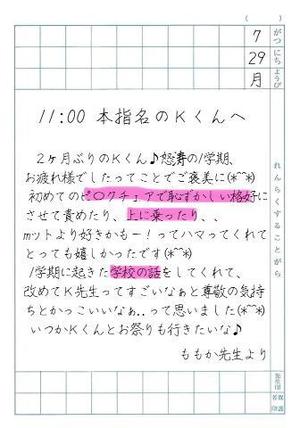 (　　)
7
がつ
29
にち
月
ようび
11:00 本指名のKくんへ
れんらくすることがら
2ヶ月ぶりのKくん♪怒涛の1学期、
お疲れ様でしたってことでご褒美に(*^^*)
初めてのピ○クチェアで恥ずかしい格好に
させて責めたり、上に乗ったり、、
mットより好きかもー！ってハマってくれて
とっても嬉しかったです(*^^*)
1学期に起きた学校の話をしてくれて、
改めてK先生ってすごいなぁと尊敬の気持
ちとかっこいいなぁ..って思いました(*^^*)
いつかKくんとお祭りも行きたいな♪
ももか先生より